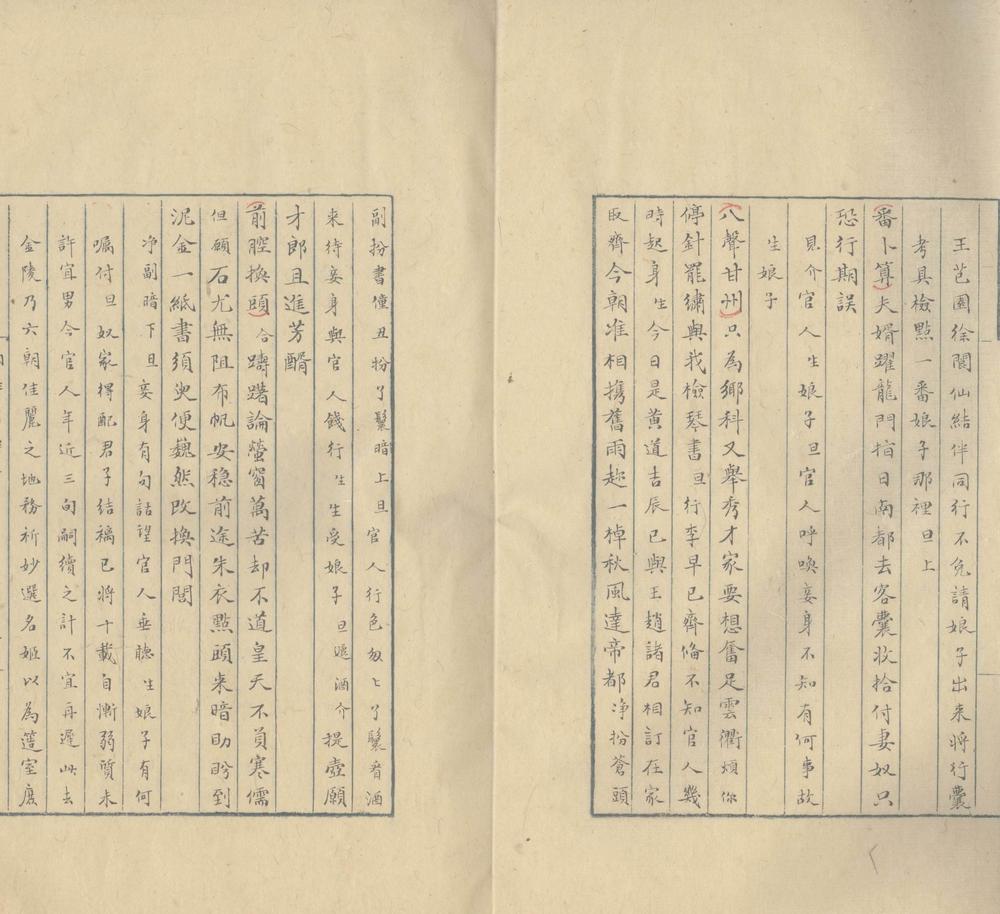 王芑園徐閬仙結伴同行不免請娘子出来將行囊
考具檢點一番娘子那裡旦上
番卜算夫婿躍龍門指日南都去客囊收拾付妻奴只
恐行期誤
見介官人生娘子旦官人呼喚妾身不知有何事故
生娘子
八聲甘州只為鄉科又舉秀才家要想奮足雲衢煩你
停針罷繡與我檢琴書旦行李早已齊偹不知官人幾
時起身生今日是黄道吉辰已與王趙諸君相訂在家
取齊今朝准相携舊雨趂一棹秋風達帝都净扮蒼頭
副扮書僮丑扮了鬟暗上旦官人行色匆匕了鬟看酒
来待妾身與官人餞行生生受娘子旦遞酒介提壺願
才郎且進芳醑
前腔換頭合躊躇論螢窗萬苦却不道皇天不負寒儒
但願石尤無阻布帆安穏前途朱衣點頭来暗助盻到
泥金一紙書須臾便巍然改換門閭
净副暗下旦妾身有句話望官人垂聽生娘子有何
嘱付旦奴家得配君子結褵已將十載自慚弱質未
許宜男今官人年近三旬嗣續之計不宜再遲此去
金陵乃六朝佳麗之地務祈妙選名姬以為簉室庶